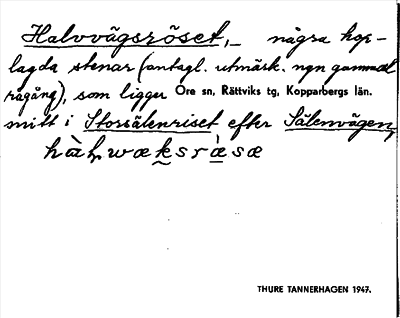 Halvvägsröset, några hop-
lagda stenar (antagl. utmärk. ngn gammal
rågång), som ligger Ore sn, Rättviks tg, Kopparbergs län.
mitt i Storsälenriset efter Sälenvägen,
THURE TANNERHAGEN 1947.